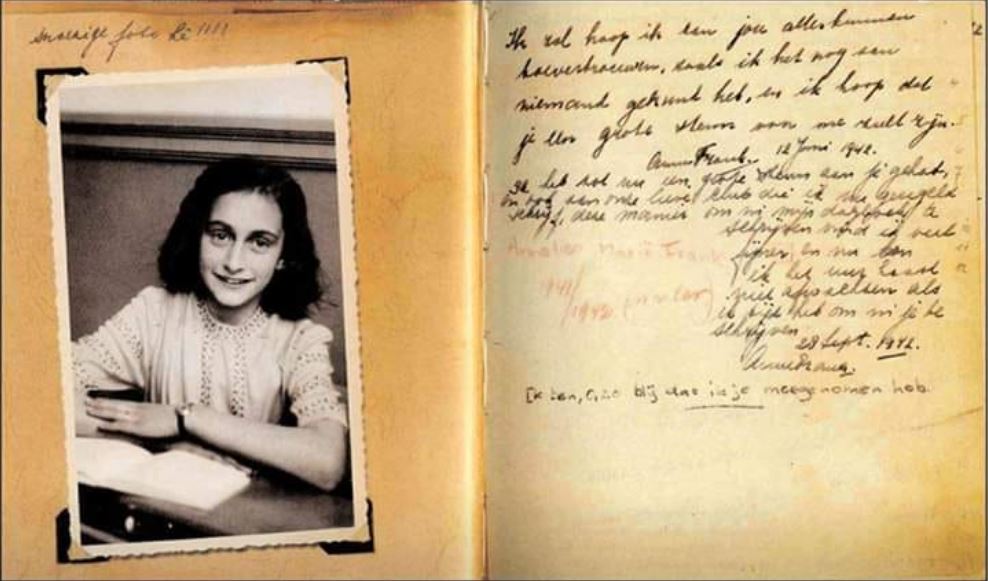 snoezige foto hè !!!!
Ik zal hoop ik aan jou alles kunnen
toevertrouwen, zoals ik het nog aan
niemand gekunt heb, en ik hoop dat
je een grote steun van me zult zijn.
Anne Frank. 12 Juni 1942.
Ik heb tot nu een grote steun aan je gehad,
en ook aan onze lieve club die ik nu geregeld
schrijf, deze manier om in mijn dagboek te
schrijven vind ik veel
fijner en nu kan
ik het uur haast
niet afwachten als
ik tijd heb om in je te
schrijven.
28 Sept. 1942.
Anne Frank.
Annelies Marie Frank
1941/
1942.
Ik ben, O, zo blij dat ik je meegenomen heb.